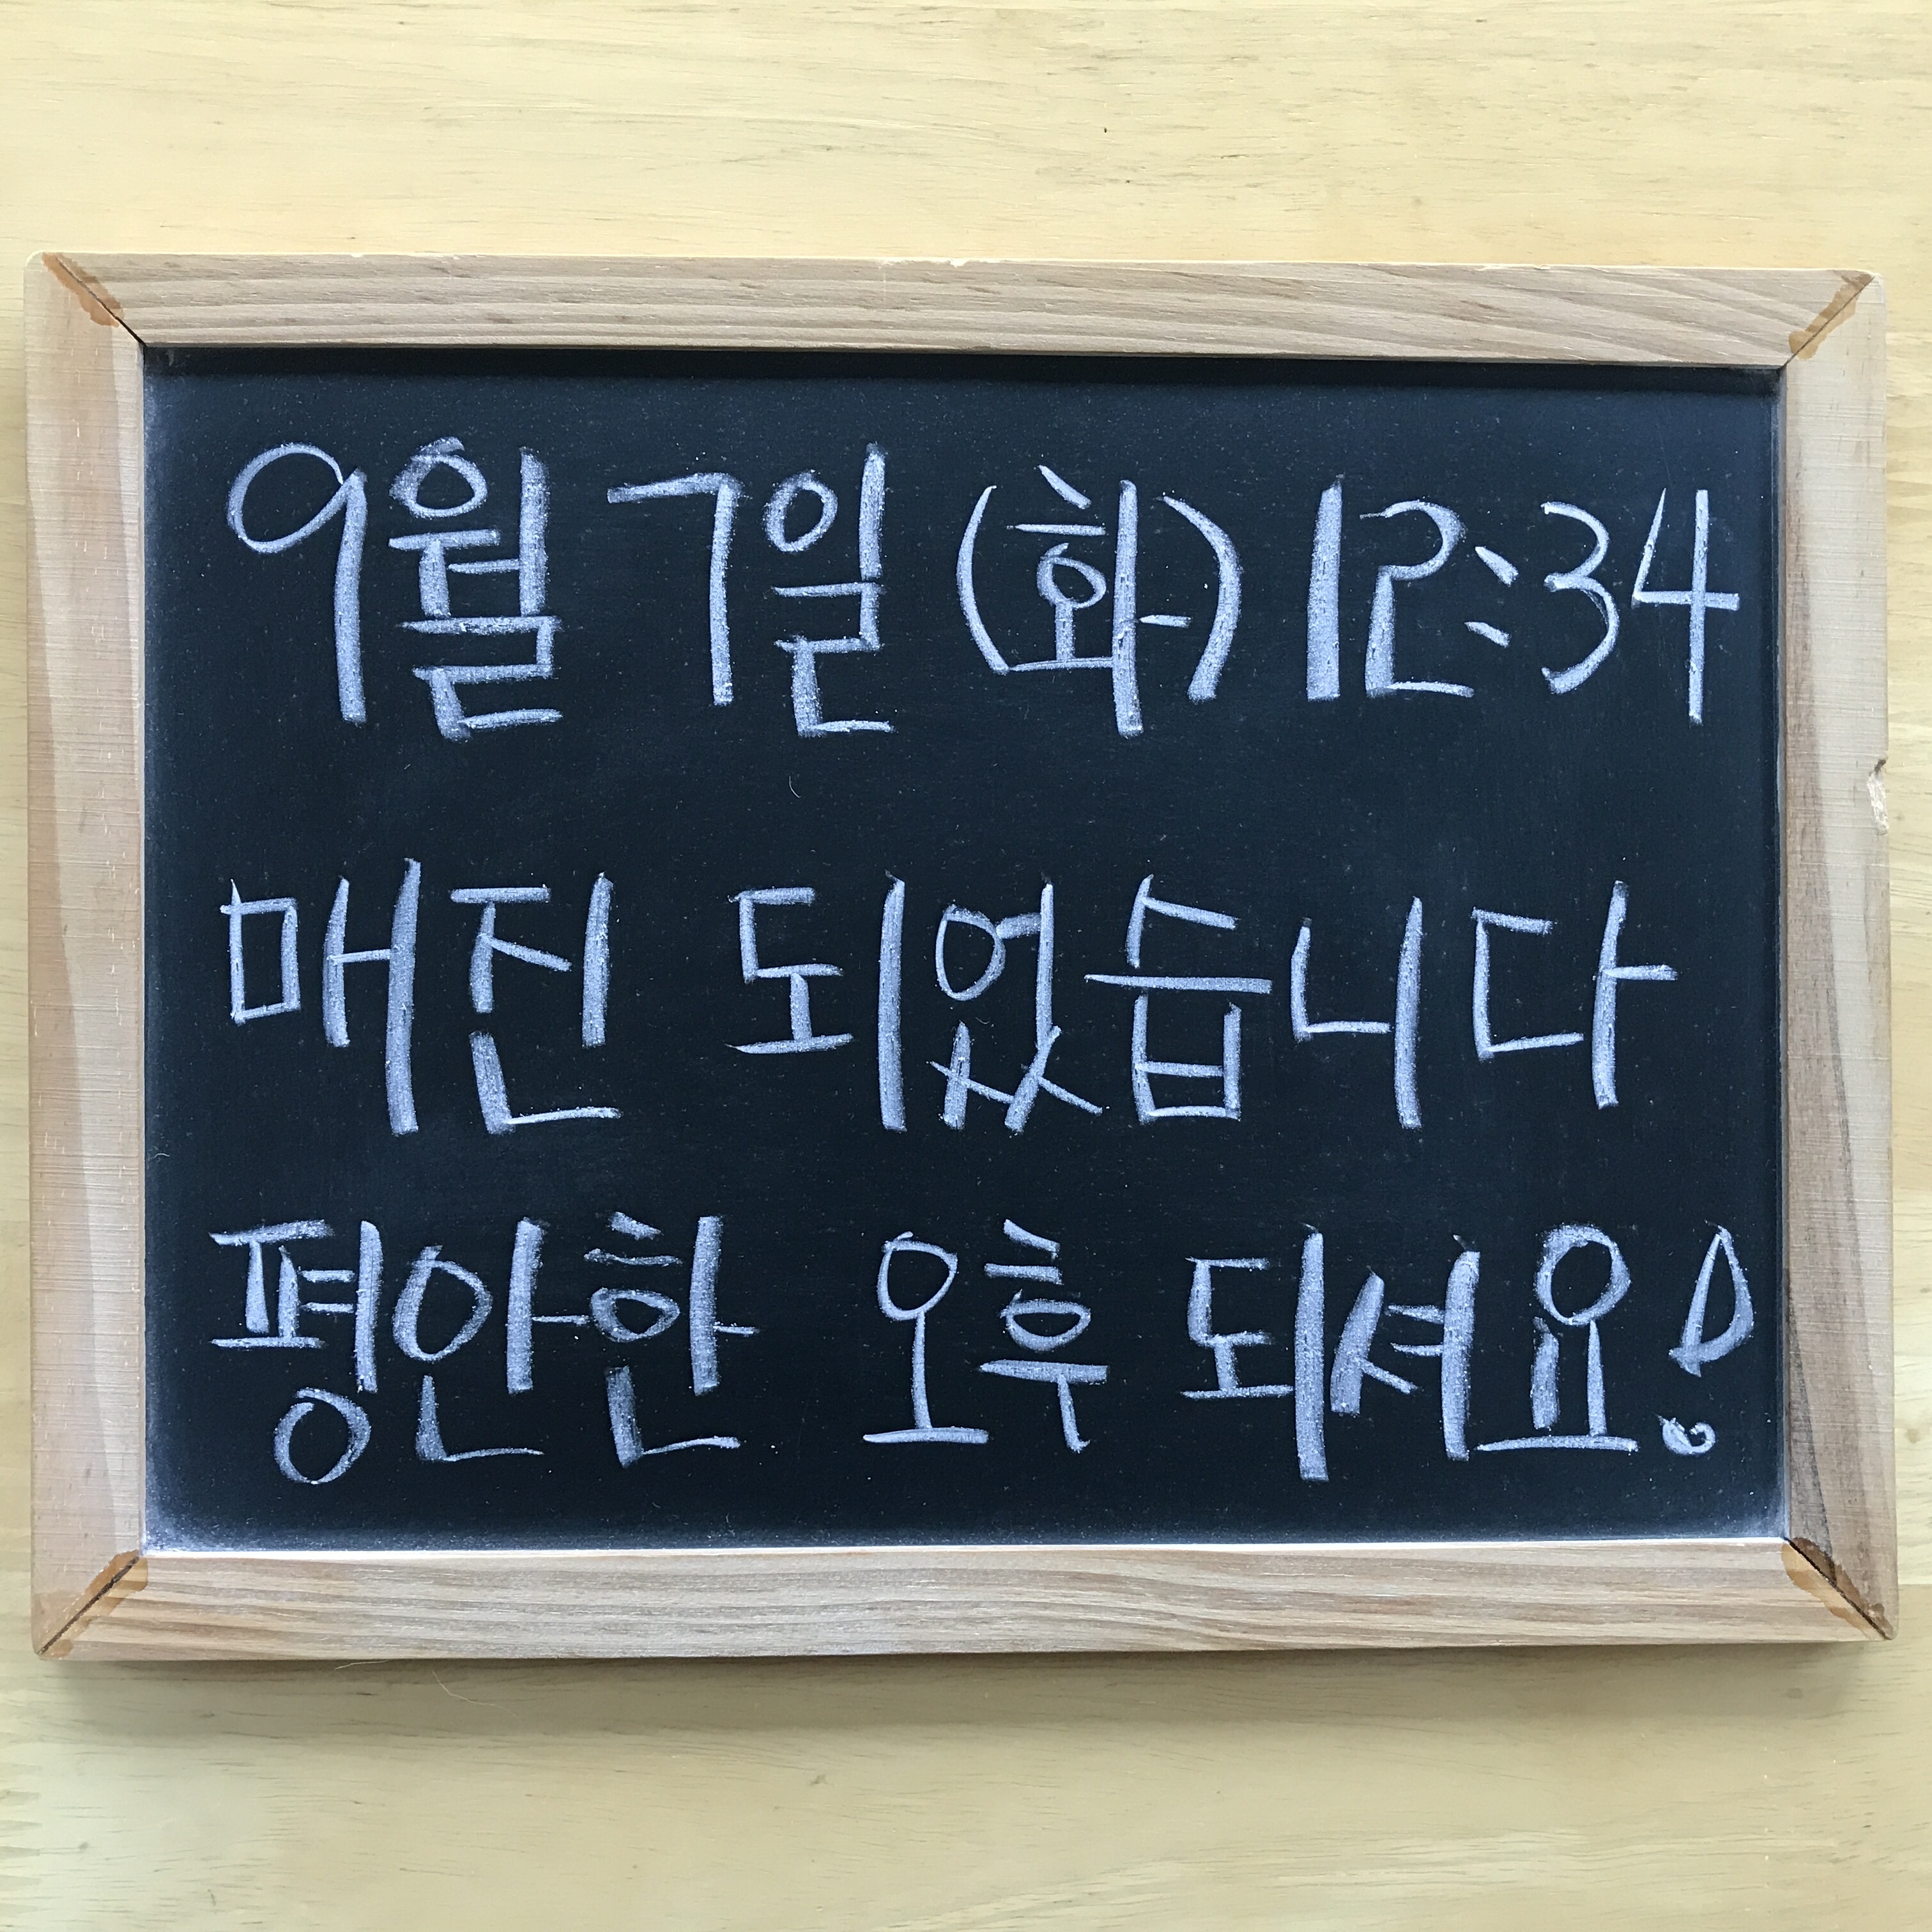 9월 7일 (화) 12:34
매진 되었습니다
평안한 오후 되셔요!